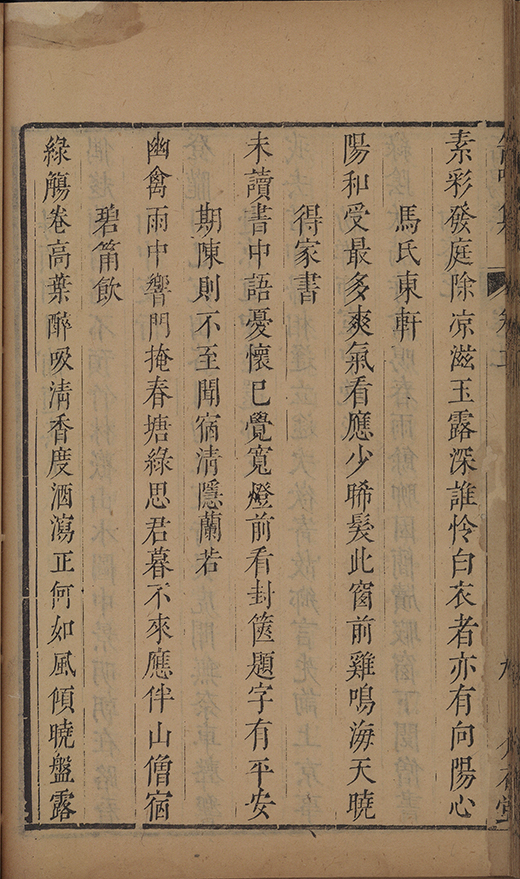 素彩發庭除凉滋玉露深誰怜白衣者亦有向陽心
馬氏東軒
陽和受最多爽氣看應少晞髮此窗前雞鳴海天曉
得家書
未讀書中語憂懷已覺寬燈前看封篋題字有平安
期陳則不至聞宿清隱蘭若
幽禽雨中響門掩春塘綠思君暮不來應伴山僧宿
碧筩飲
綠觴卷高葉醉吸清香度酒瀉正何如風傾曉盤露